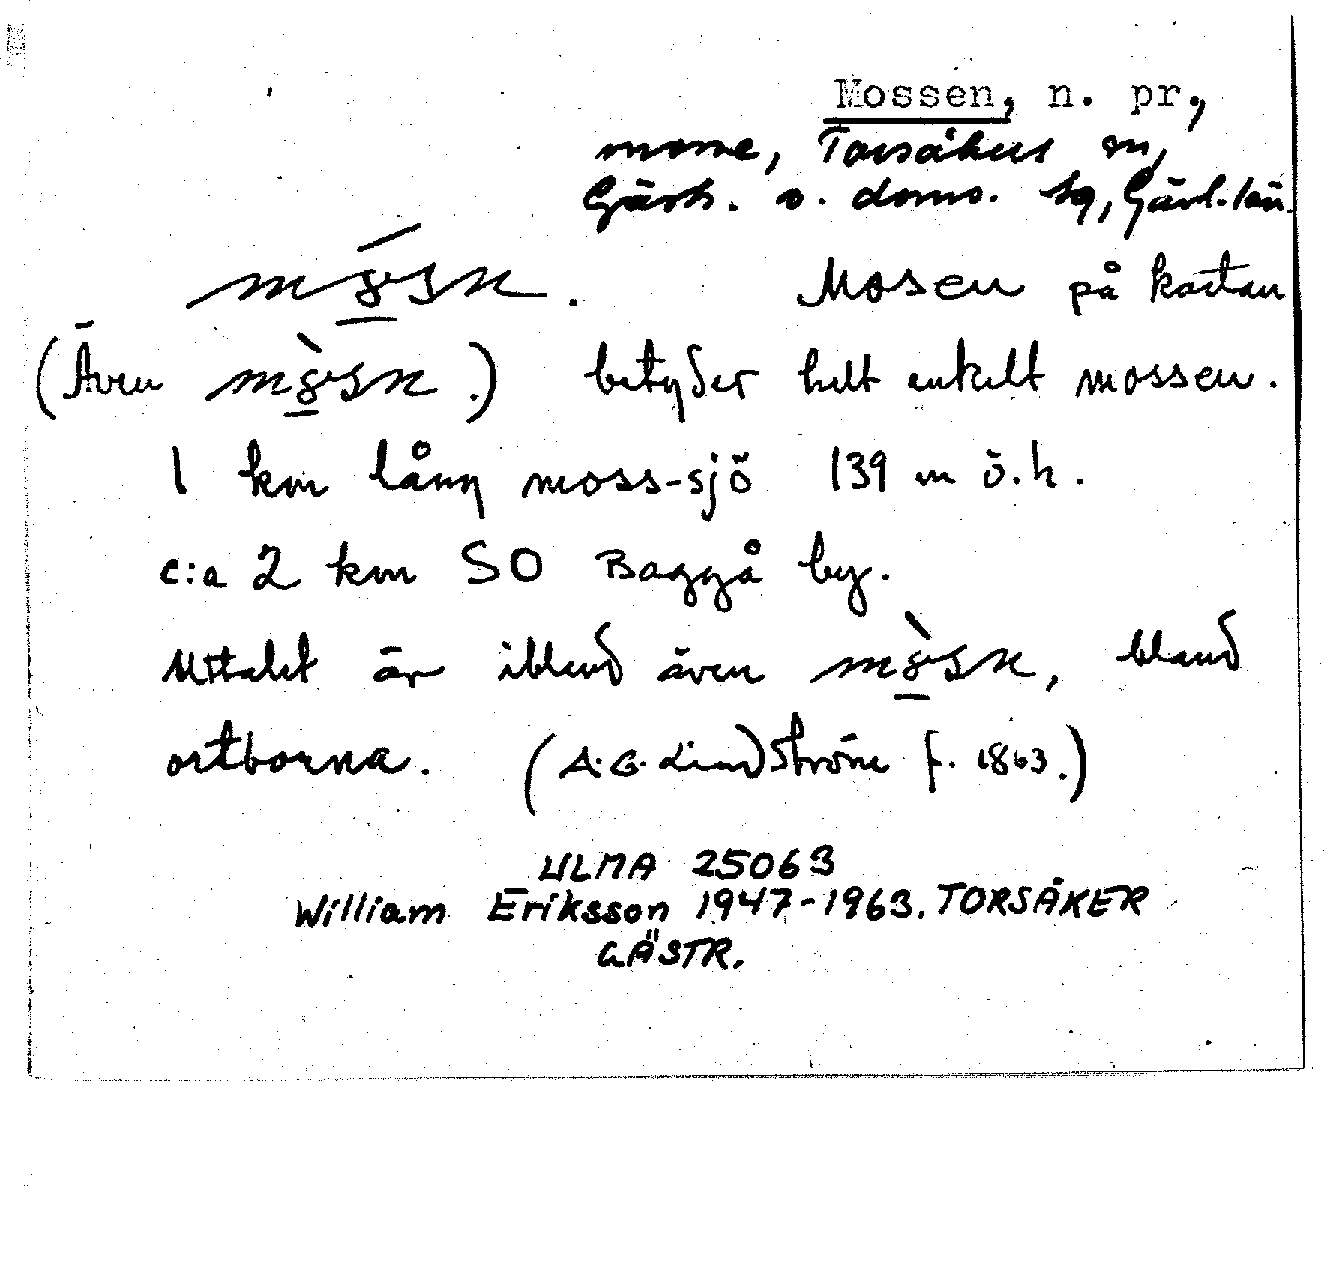 Mossen, n. pr,
mosse, Torsåkers sn,
Gästr. o. doms. hg, Gävl. län.
Mosen på kartan
(Även betyder helt enkelt mossen.
1 km lång moss-sjö 139 m ö.h.
c:a 2 km SO Baggå by.
Uttalet är ibland även bland
ortborna. (A.G. Lindström f. 1863.)
ULMA 25063
William Eriksson 1947-1963. TORSÅKER
GÄSTR.